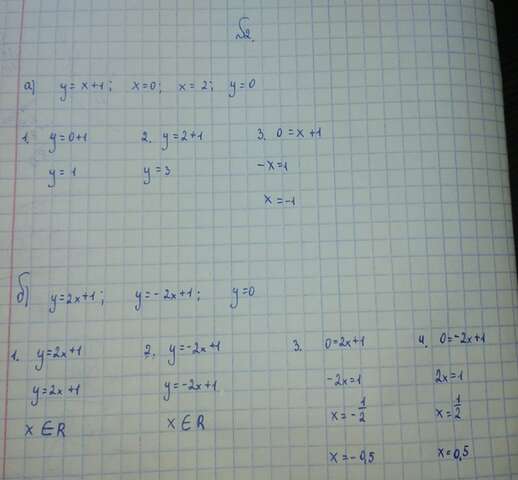 №2.
а) y=x+1; x=0; x=2; y=0
1. y=0+1 2. y=2+1 3. 0=x+1
y=1 y=3 -x=1
x=-1
б) y=2x+1; y=-2x+1; y=0
1. y=2x+1 2. y=-2x+1 3. 0=2x+1 4. 0=-2x+1
y=2x+1 y=-2x+1 -2x=1 2x=1
x∈R x∈R x=-1/2 x=1/2
x=-0,5 x=0,5